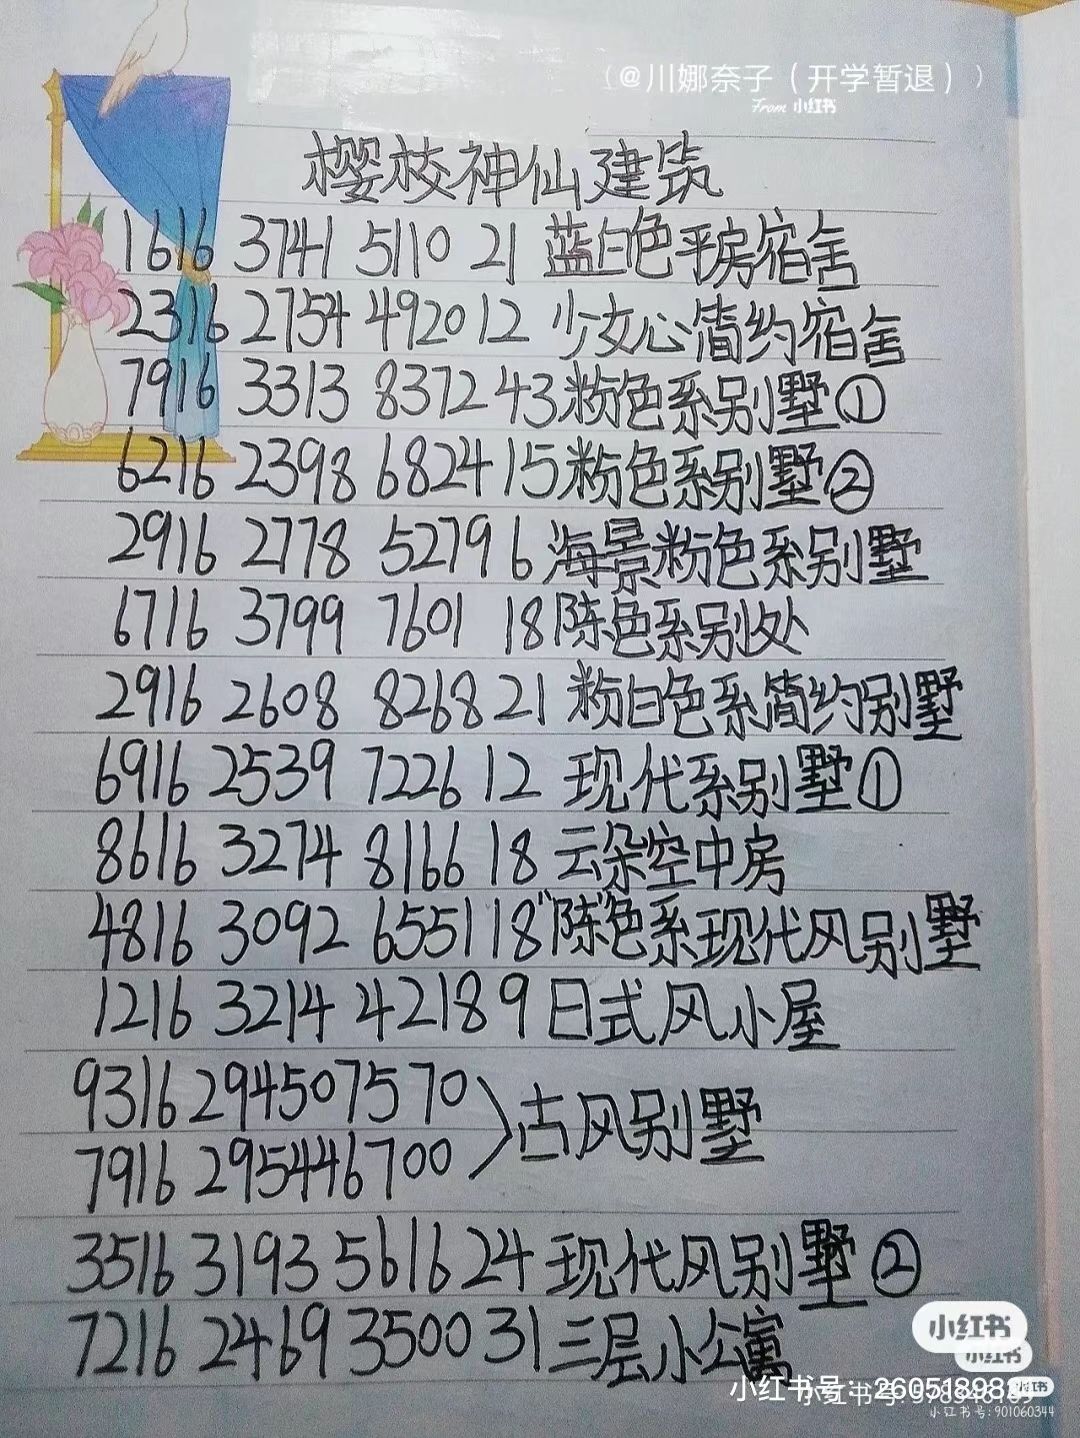 （@川娜奈子（开学暂退））
From 小红书
樱校神仙建筑
1616 3741 5110 21 蓝白色平房宿舍
2316 2754 4920 12 少女心简约宿舍
7916 3313 8372 43 粉色系别墅①
6216 2398 6824 15 粉色系别墅②
2916 2778 5279 6 海景粉色系别墅
6716 3799 7601 18 陈色系别处
2916 2608 8268 21 粉白色系简约别墅
6916 2539 7226 12 现代系别墅①
8616 3274 8166 18 云朵空中房
4816 3092 6551 18 “陈”色系现代风别墅
1216 3214 4218 9 日式风小屋
9316 2945 0757 0
7916 2954 4670 0
古风别墅
3516 3193 5616 24 现代风别墅②
7216 2469 3500 31 三层小公寓
小红书
小红书
小红书号：260518982
小红书
小红书号:901060344